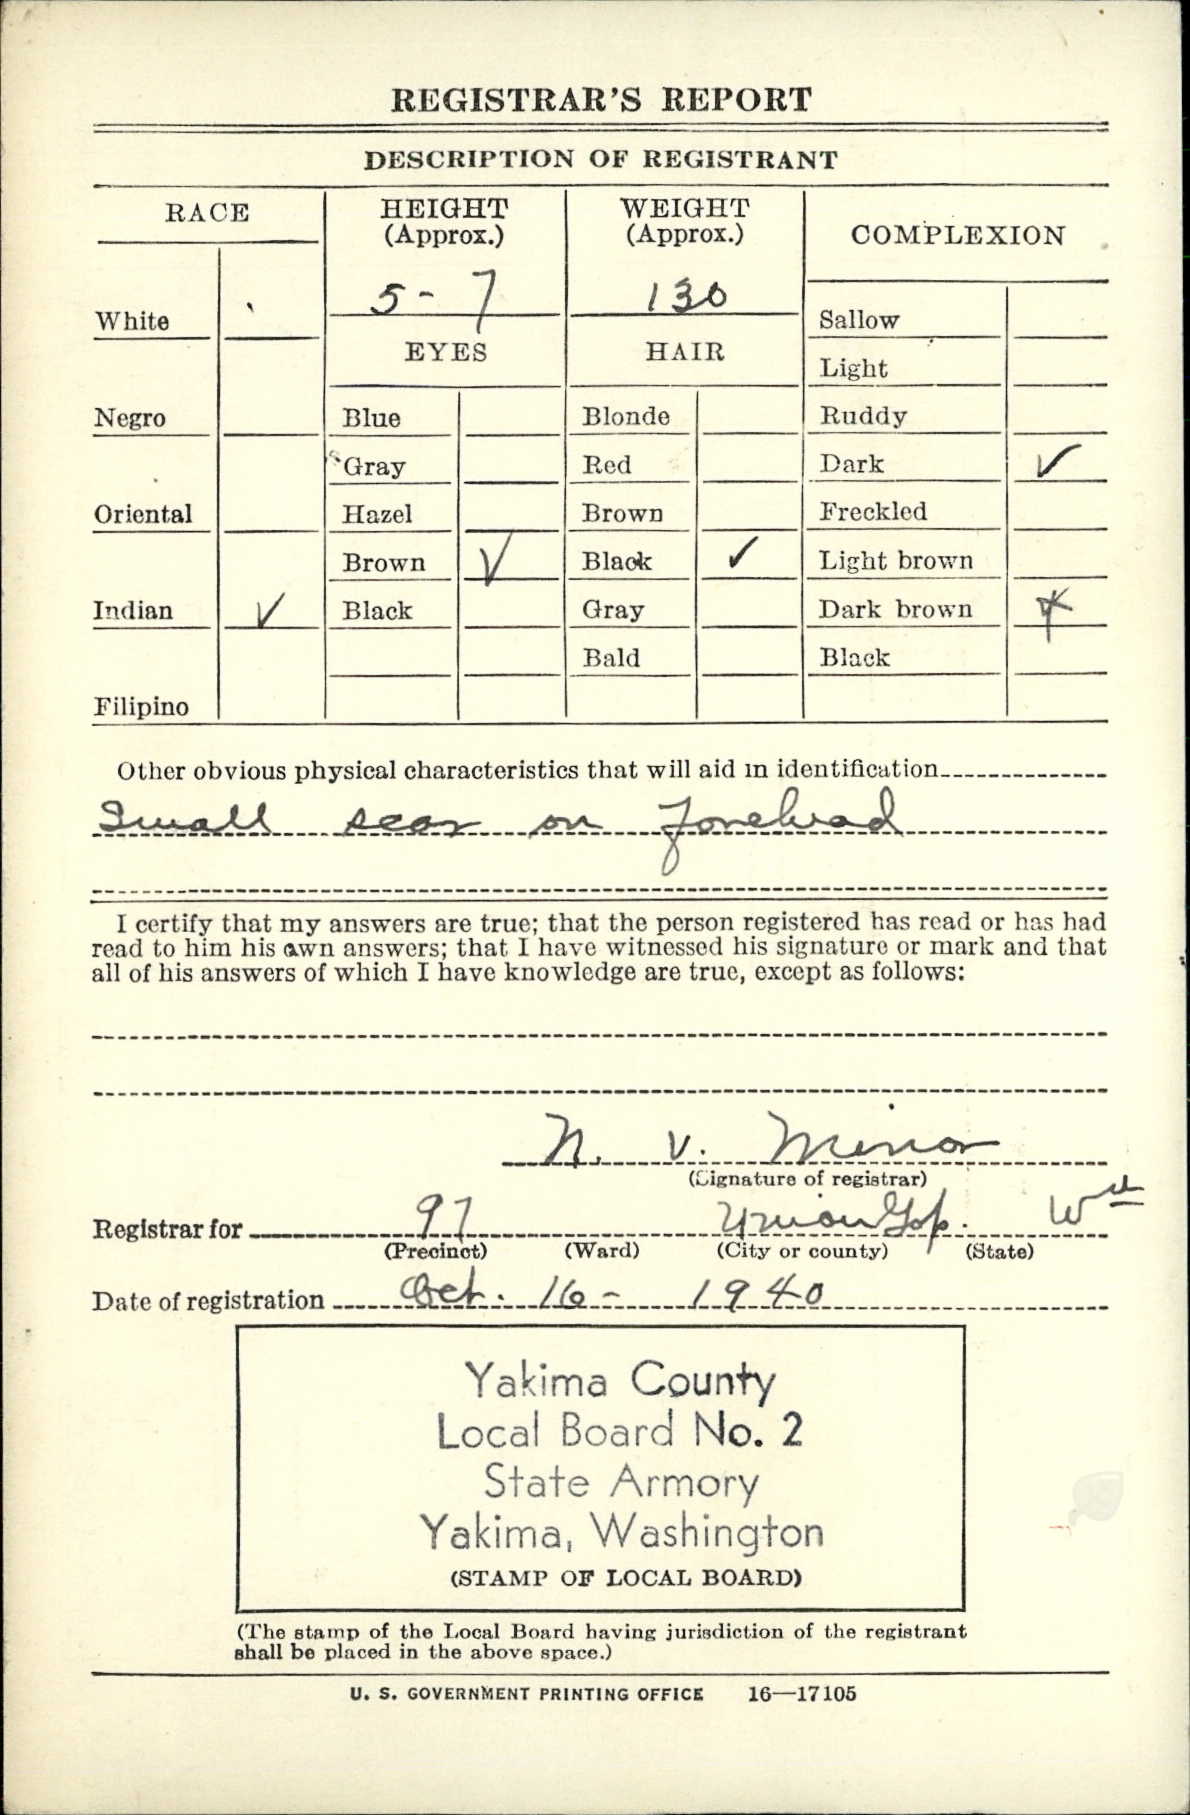 REGISTRAR'S REPORT
DESCRIPTION OF REGISTRANT
RACE
HEIGHT
(Approx.)
WEIGHT
(Approx.)
COMPLEXION
5-7
130
White
EYES
HAIR
Sallow
Light
Negro
Blue
Blonde
Ruddy
Gray
Red
Dark ✓
Oriental
Hazel
Brown
Freckled
Brown ✓
Black ✓
Light brown
Indian ✓
Black
Gray
Dark brown
Bald
Black
Filipino
Other obvious physical characteristics that will aid in identification
Small scar on forehead
I certify that my answers are true; that the person registered has read or has had
read to him his own answers; that I have witnessed his signature or mark and that
all of his answers of which I have knowledge are true, except as follows:
N. V. Minor
(Signature of registrar)
Registrar for 97 Union Gap. Wn
(Precinct) (Ward) (City or county) (State)
Date of registration Oct. 16 - 1940
Yakima County
Local Board No. 2
State Armory
Yakima, Washington
(STAMP OF LOCAL BOARD)
(The stamp of the Local Board having jurisdiction of the registrant
shall be placed in the above space.)
U. S. GOVERNMENT PRINTING OFFICE 16—17105